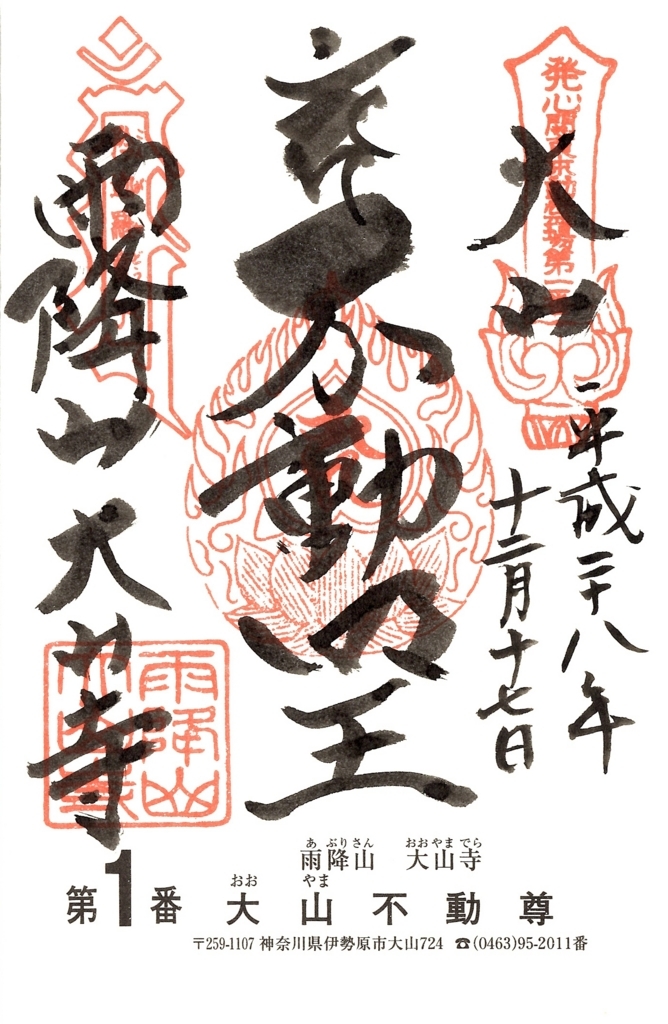 発心関東
大山
平成二十八年
十二月十七日
不動明王
雨降山大山寺
雨降山
あぶりさん おおやまでら
雨降山 大山寺
おお やま
第1番 大山不動尊
〒259-1107 神奈川県伊勢原市大山724 ☎(0463)95-2011番